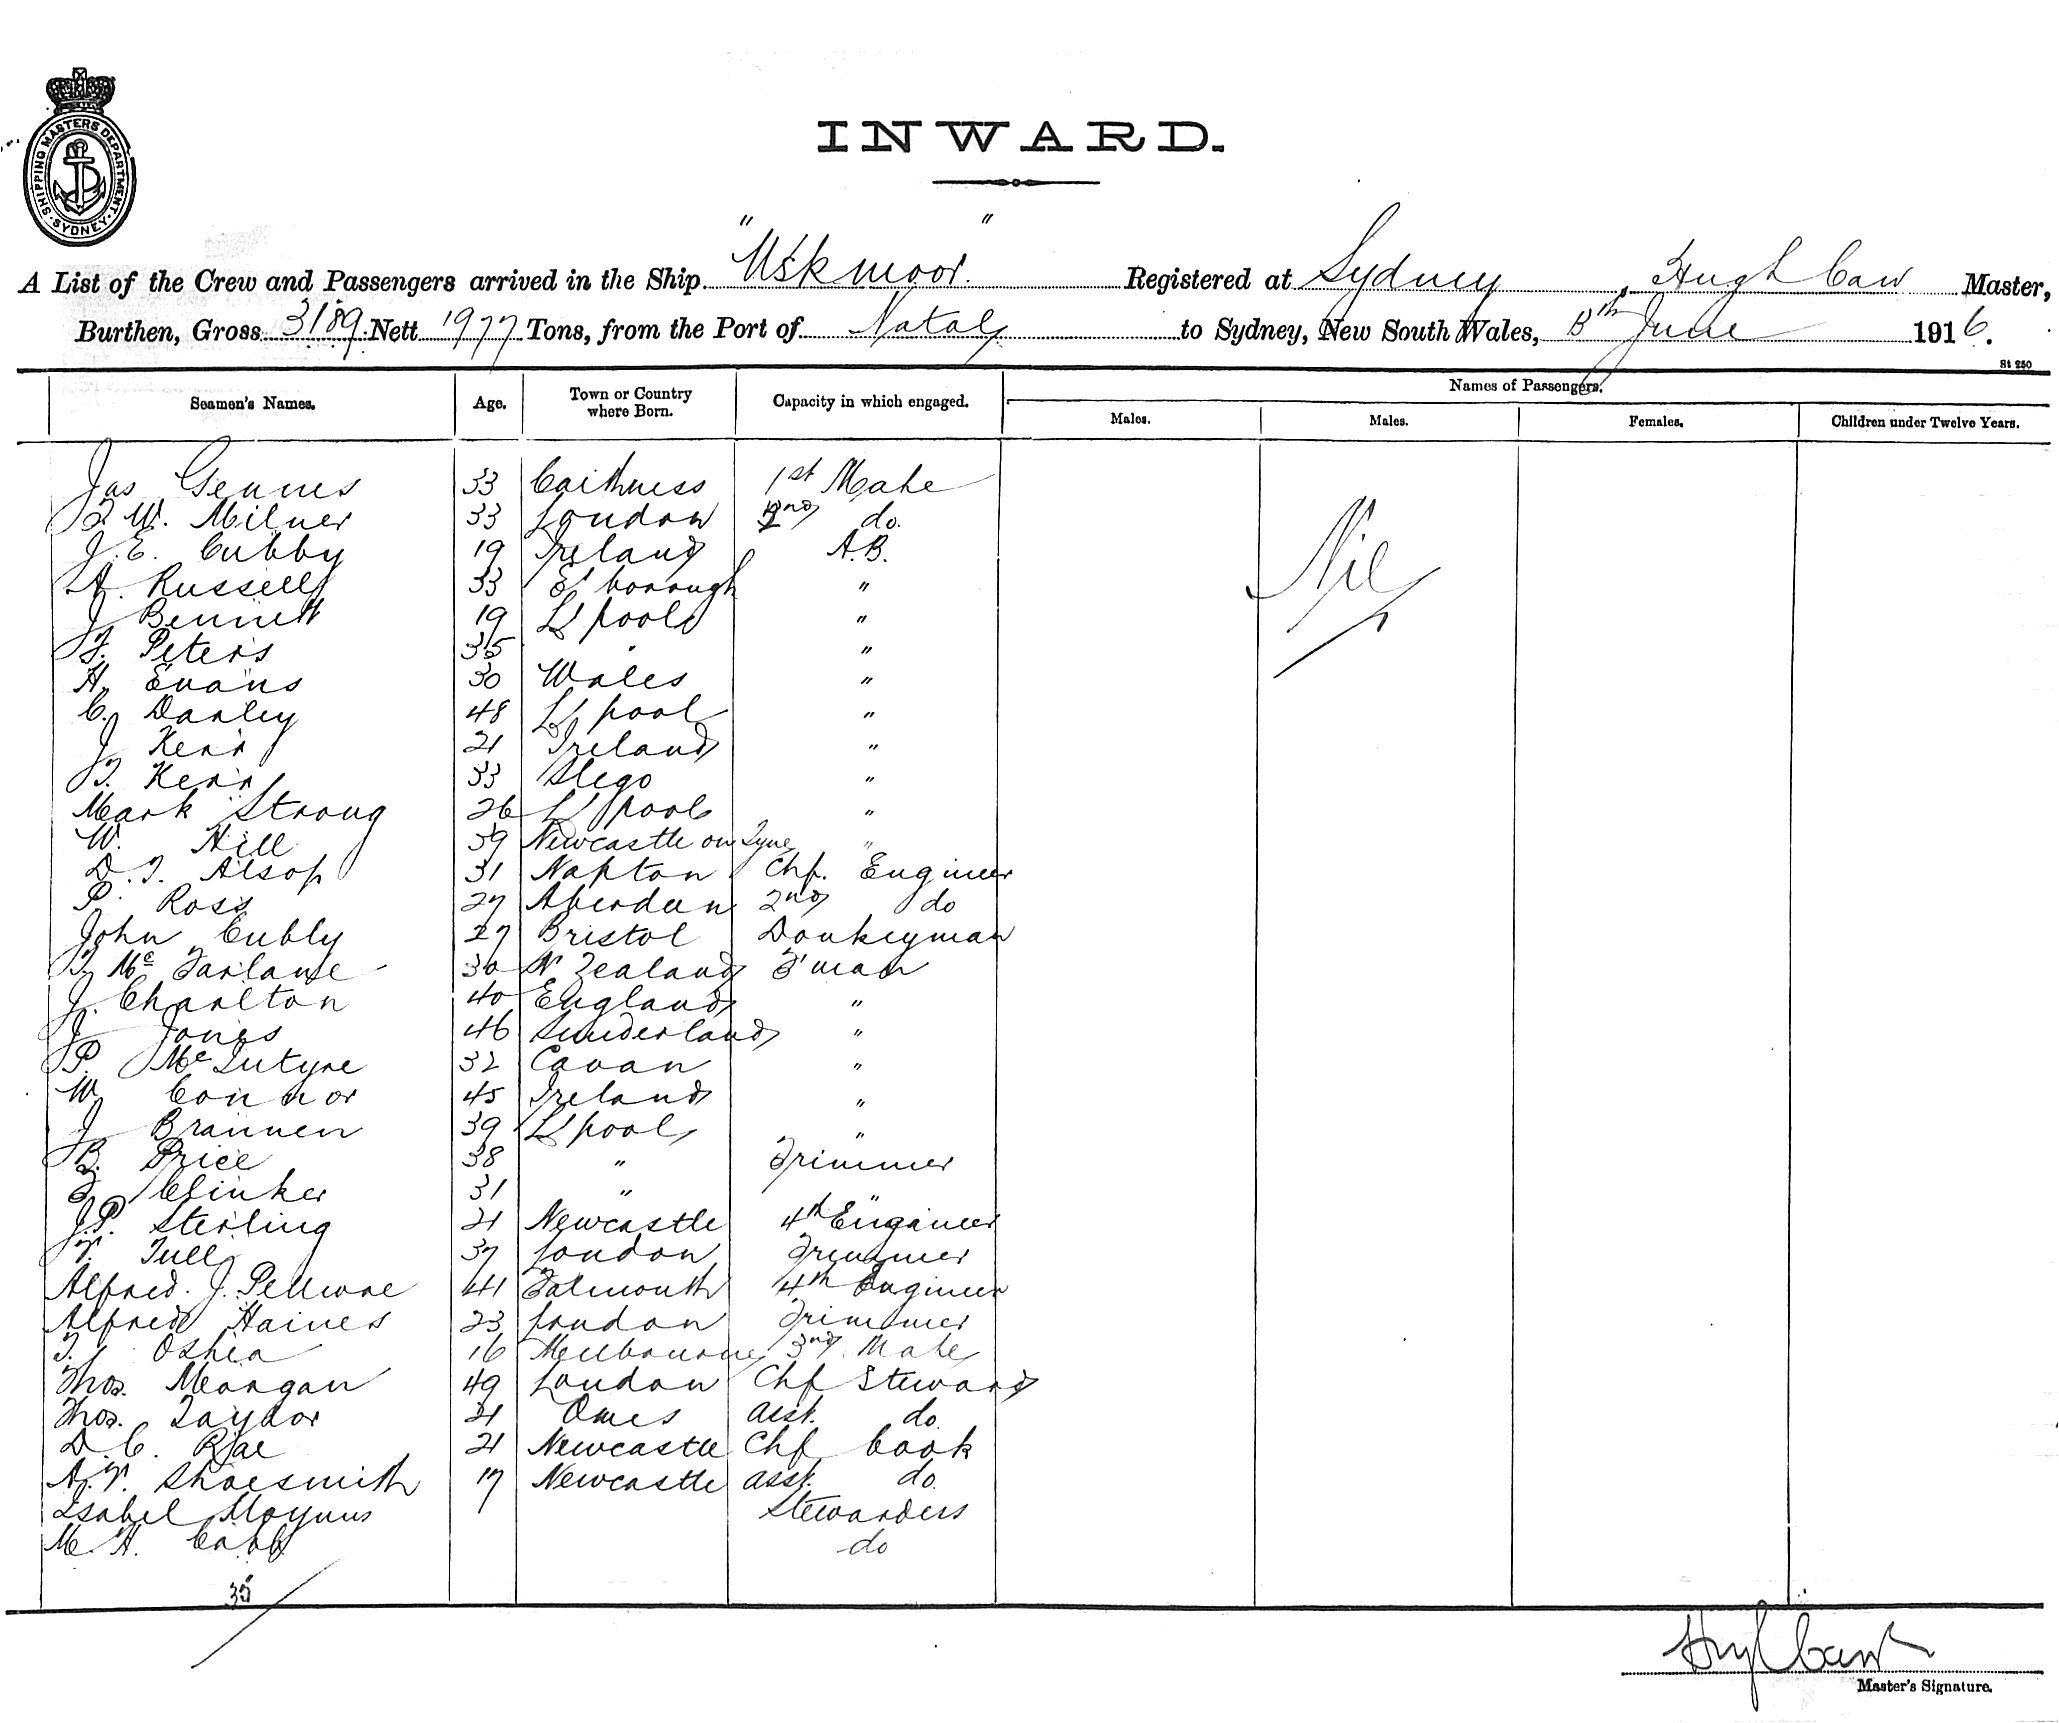 SHIPPING MASTERS DEPARTMENT. SYDNEY
INWARD.
A List of the Crew and Passengers arrived in the Ship "Uskmoor." Registered at Sydney, Hugh Caw Master,
Burthen, Gross 3189 Nett 1977 Tons, from the Port of Natal to Sydney, New South Wales, 8th June 1916.
St 250
Seamen's Names. Age. Town or Country where Born. Capacity in which engaged. Names of Passengers.
Males. Males. Females. Children under Twelve Years.
Nil
Jas 33 Caithness 1st Mate
W. Milner 33 London 2nd do.
J. E. Cubby 19 Ireland A.B.
A. Russell 33 borough "
J Bennett 19 L'pool "
F. Peters 35 " "
H. Evans 30 Wales "
C. Danley 48 L'pool "
J Kerr 21 Ireland "
T. Kerr 33 Sligo "
Mark Strong 26 L'pool "
W. Hill 39 Newcastle on Tyne "
D. T. Alsop 31 Napton Chf. Engineer
P. Ross 27 Aberdeen 2nd do
John Cubly 27 Bristol Donkeyman
T. Mc Farlane 30 N Zealand F'man
J. Charlton 40 England "
J Jones 46 Sunderland "
P. McIntyre 32 Cavan "
W Connor 45 Ireland "
J Brannen 39 L'pool "
B. Price 38 " Trimmer
T Clinker 31 " "
J.P. Sterling 21 Newcastle 4th Engineer
T. Tull 37 London Trimmer
Alfred. J. 41 Falmouth 4th Engineer
Alfred Haines 23 London Trimmer
T. Oshea 16 Melbourne 3rd Mate
Thos. Morgan 49 London Chf Steward
Thos. Taylor 21 asst. do.
D. C. Rae 21 Newcastle Chf Cook
A. T. Shoesmith 17 Newcastle asst. do.
Isabel Stewardess
M. H. Cobb do
35
Hugh Caw
Master's Signature.